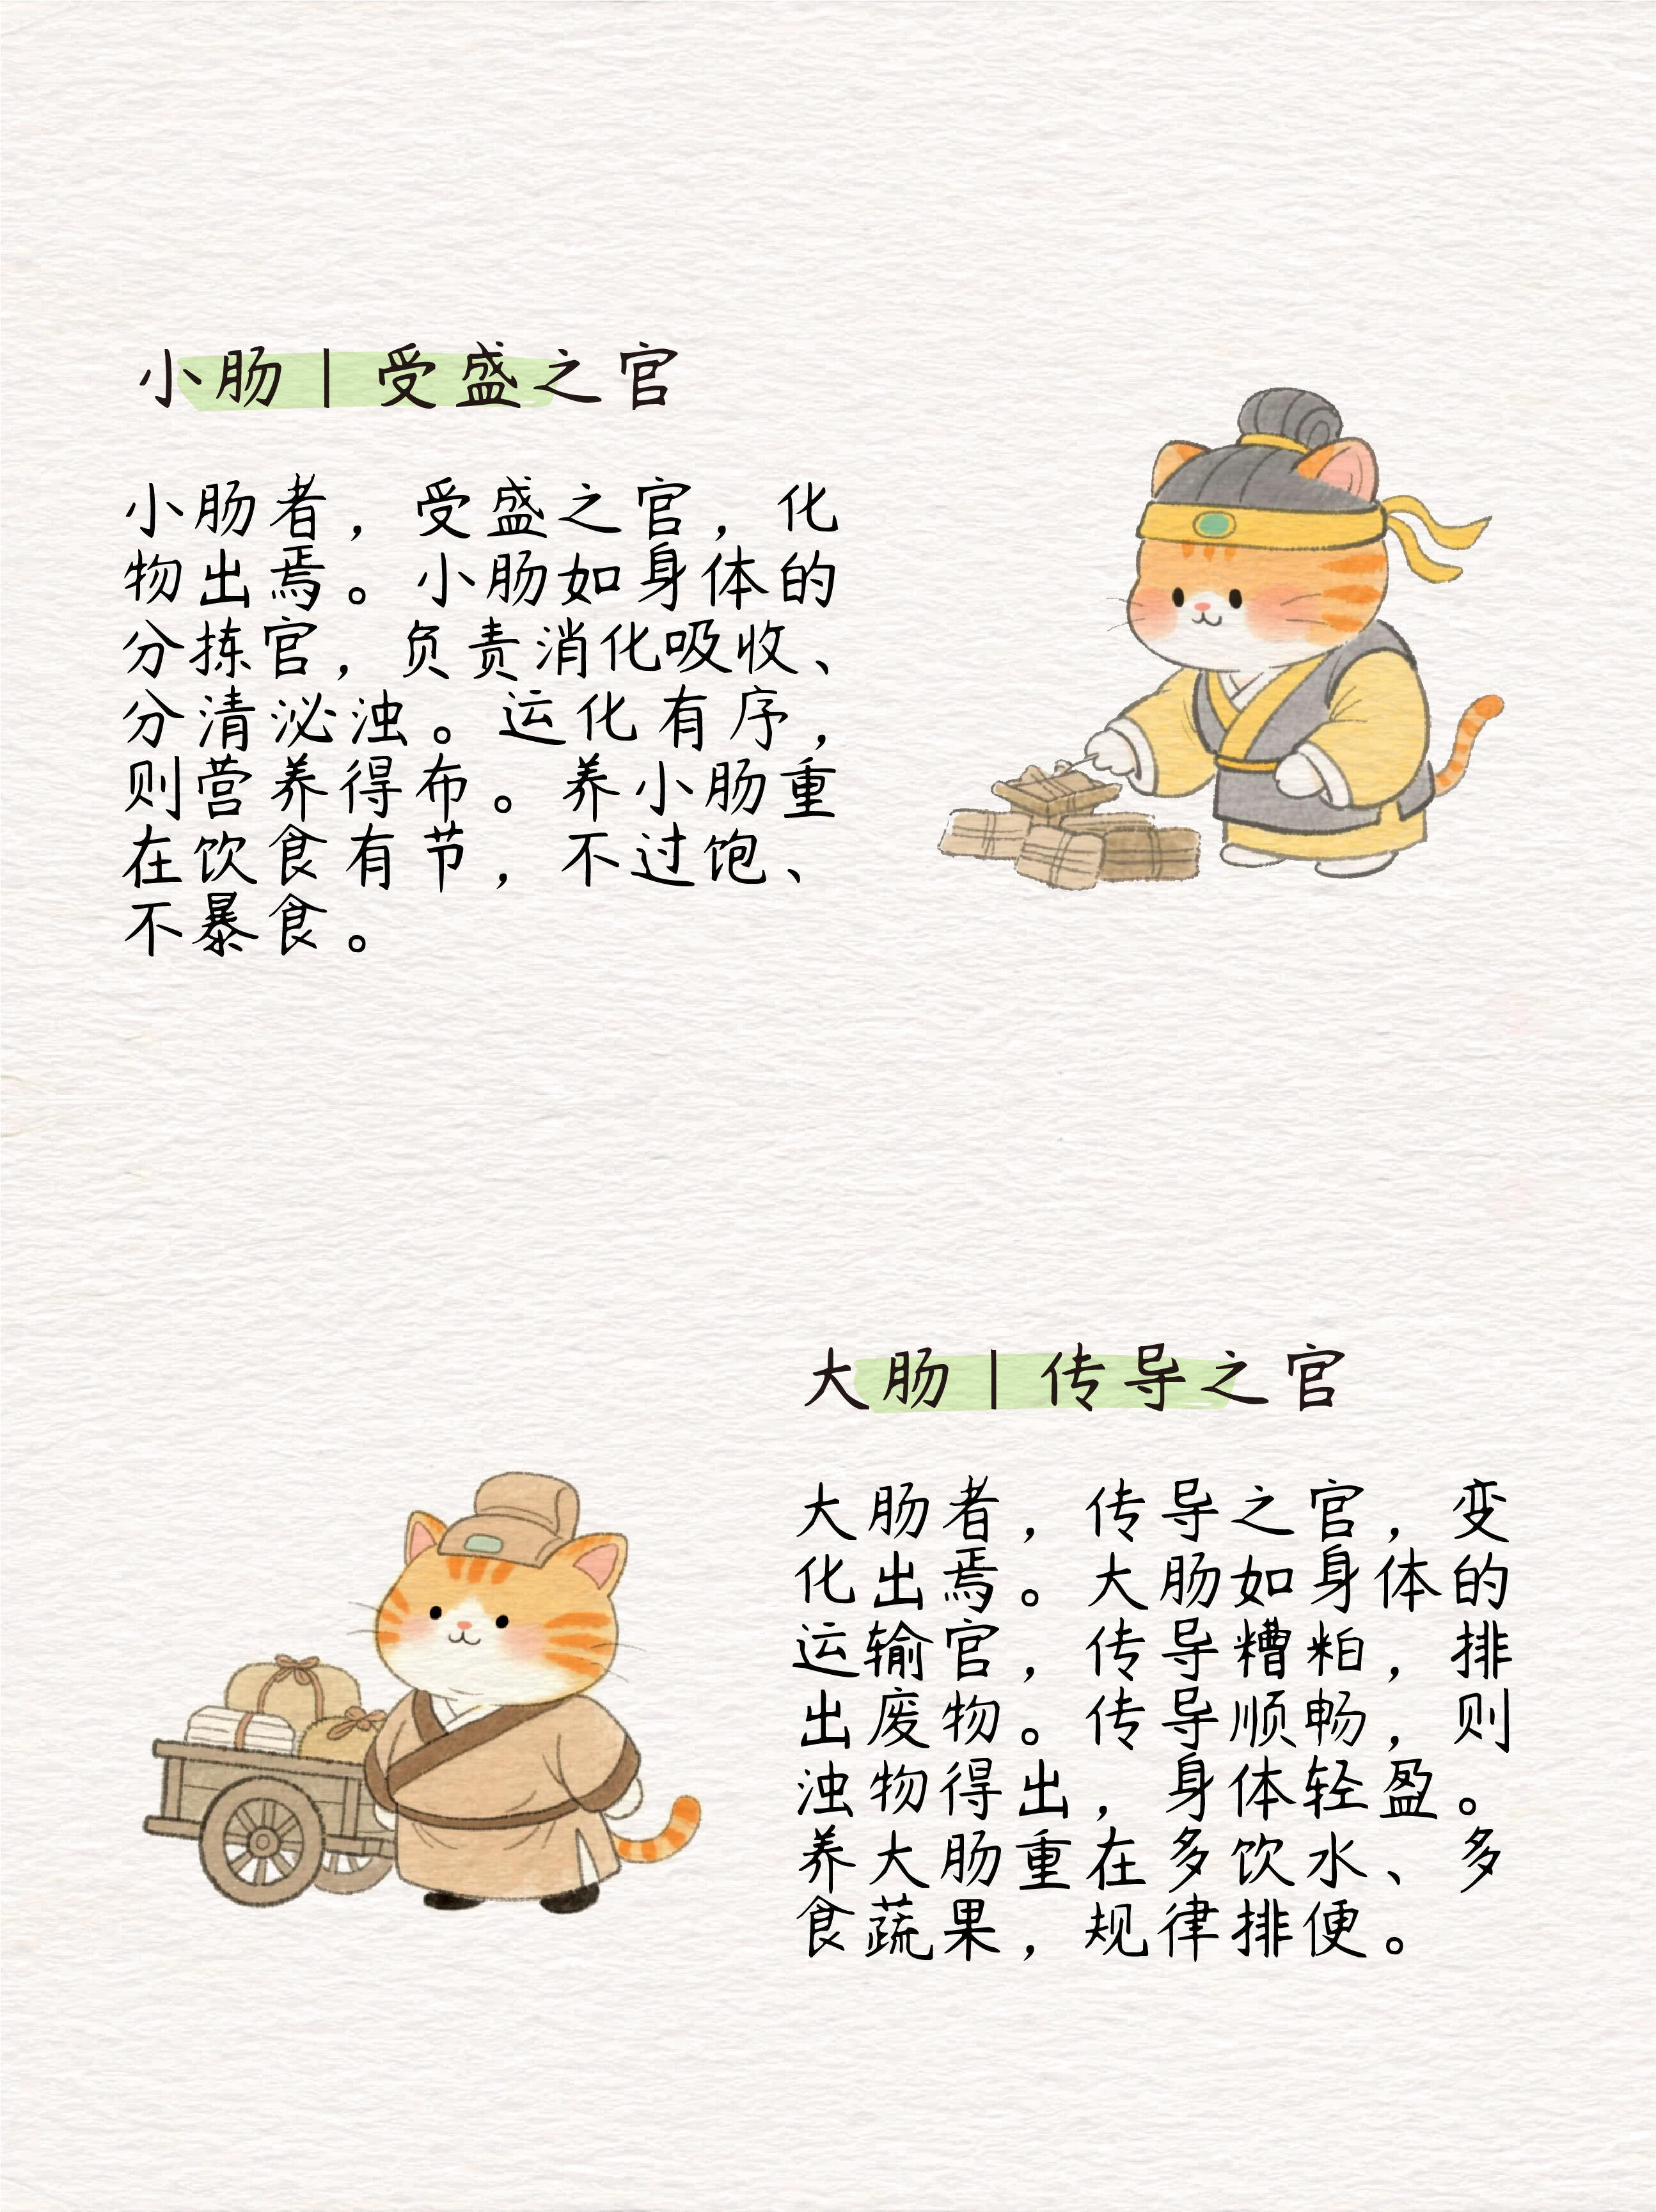 小肠｜受盛之官
小肠者，受盛之官，化
物出焉。小肠如身体的
分拣官，负责消化吸收、
分清泌浊。运化有序，
则营养得布。养小肠重
在饮食有节，不过饱、
不暴食。
大肠｜传导之官
大肠者，传导之官，变
化出焉。大肠如身体的
运输官，传导糟粕，排
出废物。传导顺畅，则
浊物得出，身体轻盈。
养大肠重在多饮水、多
食蔬果，规律排便。